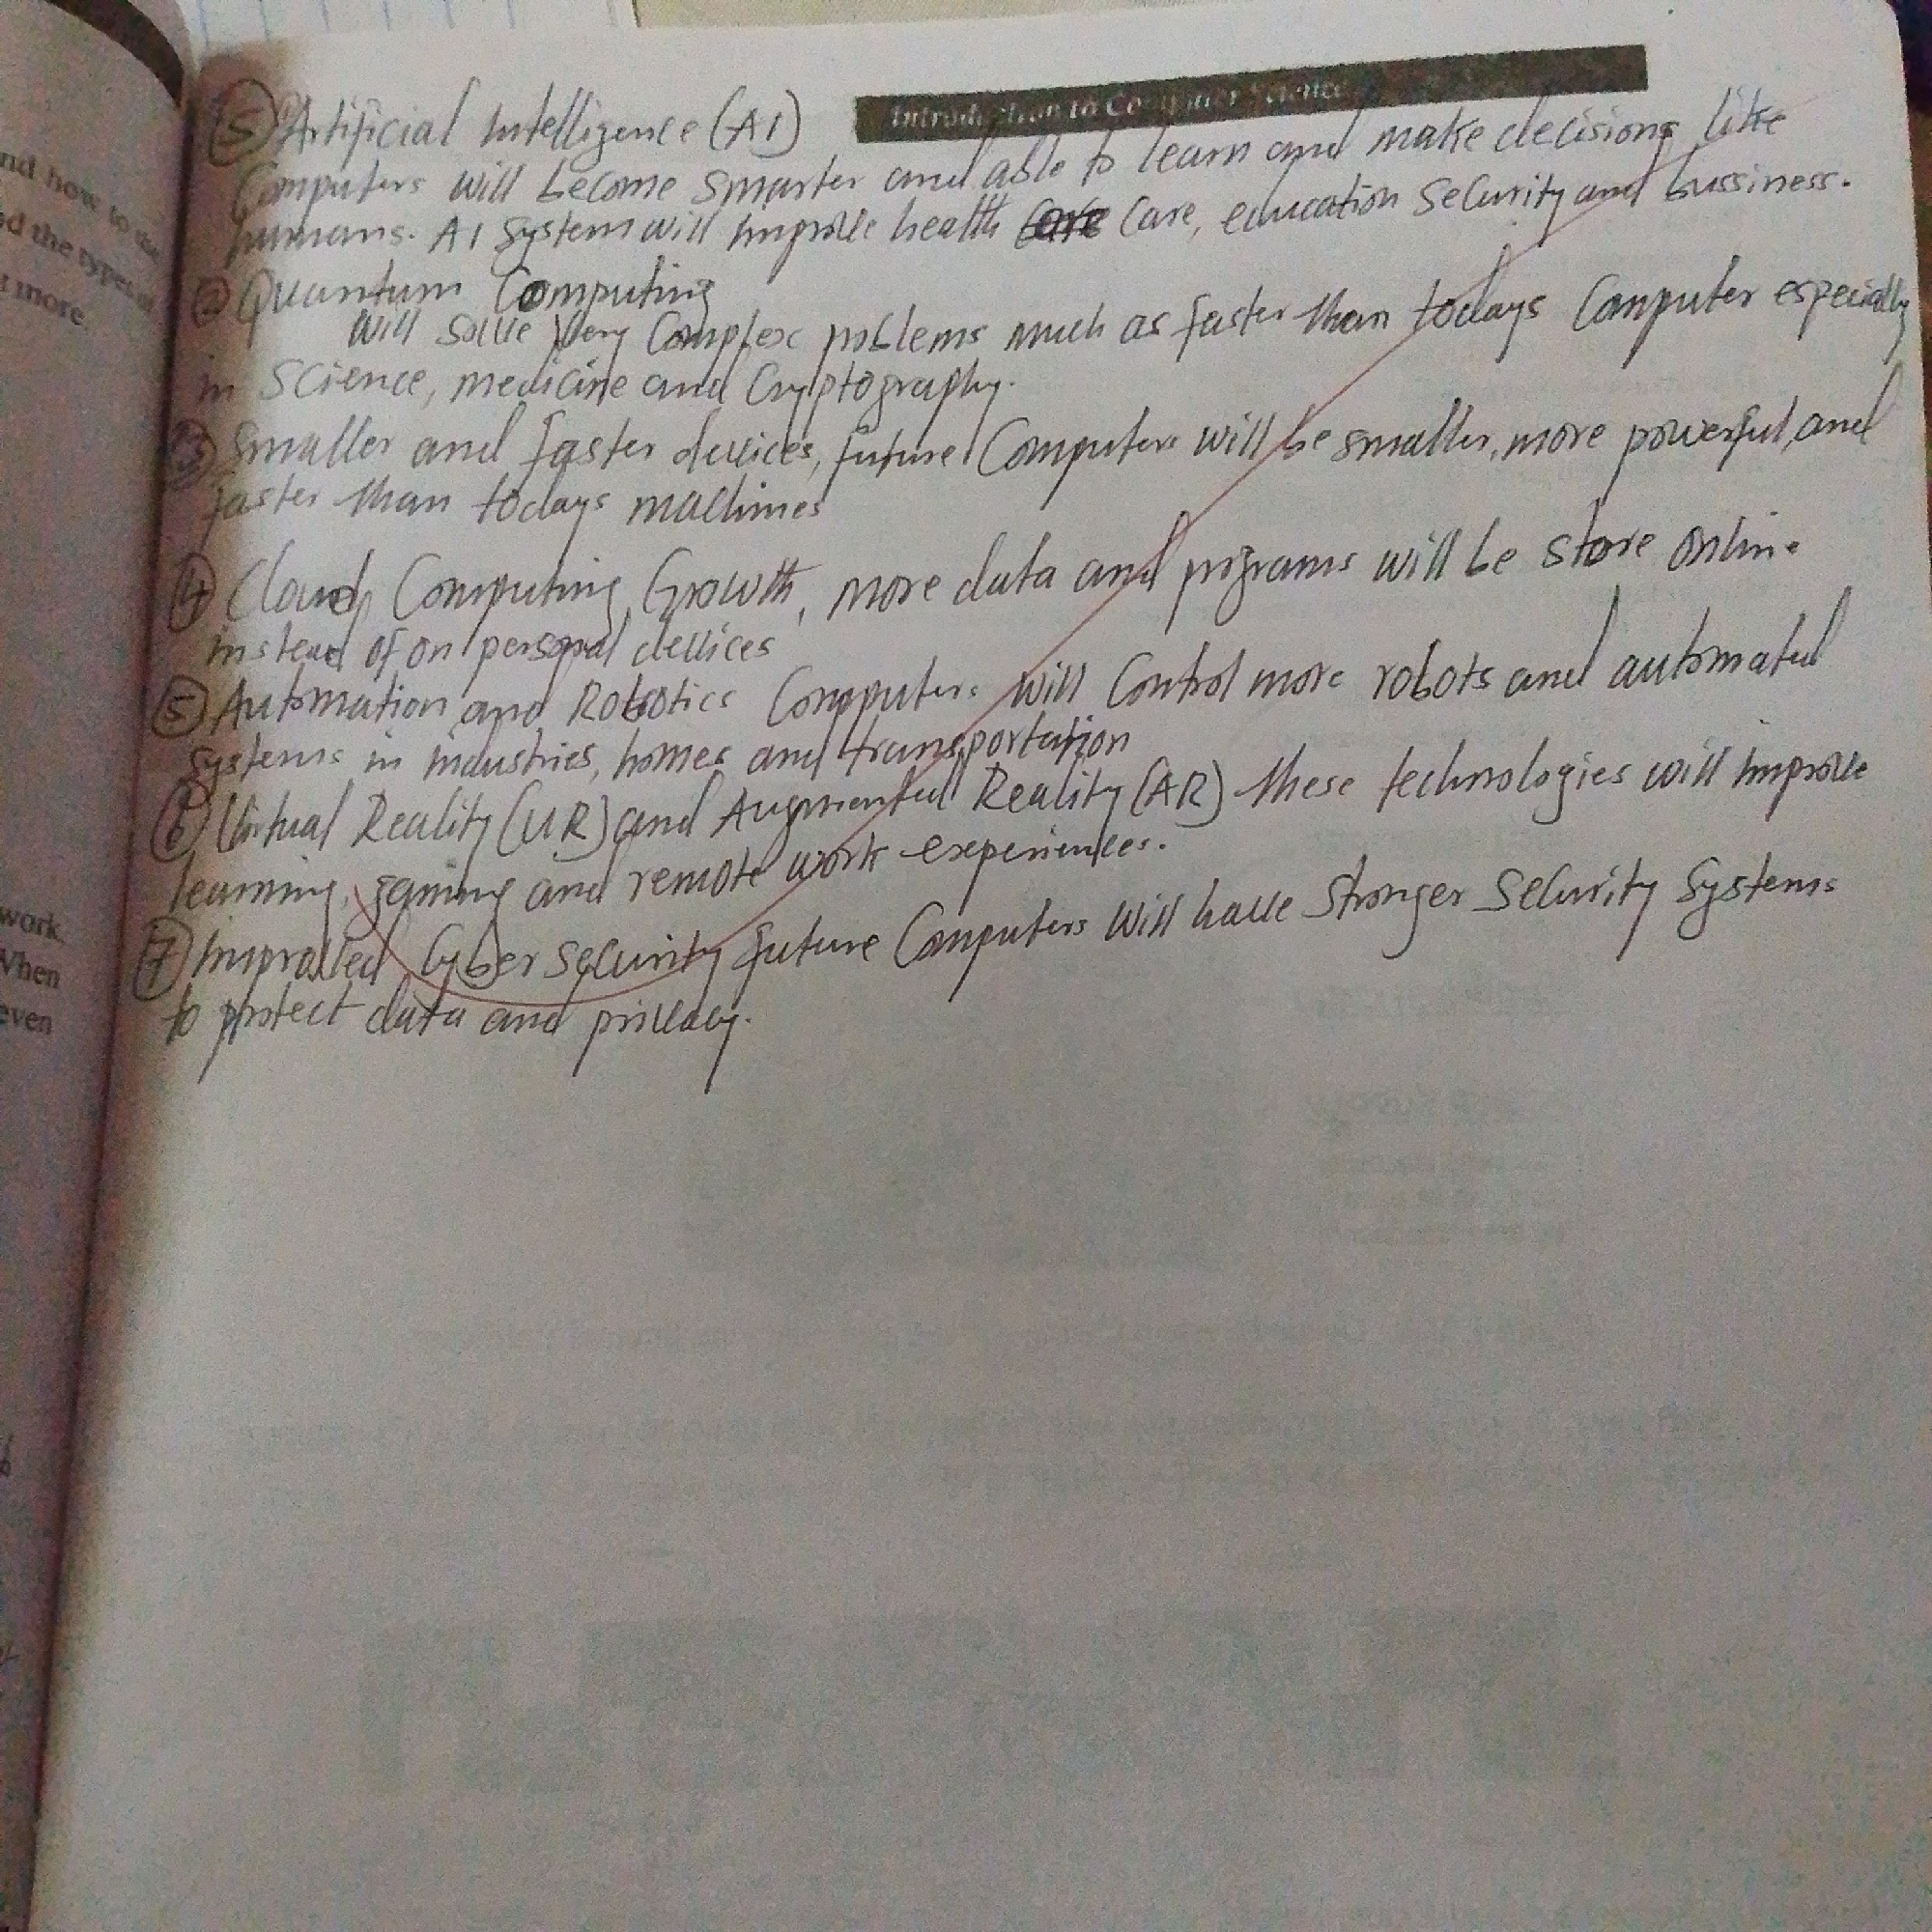 Introduction to Computer Science
⑤ Artificial Intelligence (AI)
Computers will become smarter and able to learn and make decisions like
humans. AI system will improve health care, education security and bussiness.
② Quantum Computing
will solve very complex problems much as faster than todays computer especially
in Science, medicine and Cryptography.
③ Smaller and faster devices, future Computers will be smaller, more powerful, and
faster than todays machines
④ Cloud Computing Growth, more data and programs will be store online
instead of on personal devices
⑤ Automation and Robotics Computers will Control more robots and automated
systems in industries, homes and transportation
⑥ Virtual Reality (VR) and Augmented Reality (AR) these technologies will improve
learning, gaming and remote work experiences.
⑦ Improved Cyber Security future Computers will have stronger security systems
to protect data and privacy.
and how to
ad the types of
more.
work.
When
even